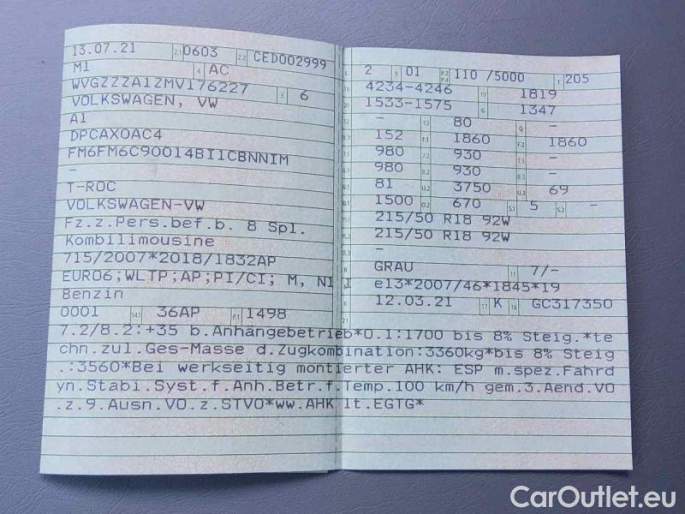 13.07.21 2.1 0603 2.2 CED002999
M1 4 AC
WVGZZZA1ZMV176227 3 6
VOLKSWAGEN, VW
A1
DPCAX0AC4
FM6FM6C90014BI1CBNNIM
-
T-ROC
VOLKSWAGEN-VW
Fz.z.Pers.bef.b. 8 Spl.
Kombilimousine
715/2007*2018/1832AP
EURO6;WLTP;AP;PI/CI; M, NI I
Benzin
0001 14.1 36AP P.1 1498
2 9 01 P.2 P.4 110 /5000 T 205
4234-4246 1819
1533-1575 1347
- 80 -
152 1860 1860
980 930 -
980 930 -
81 3750 69
1500 670 5 -
215/50 R18 92W
215/50 R18 92W
-
GRAU 11 7/-
e13*2007/46*1845*19
12.03.21 17 K 16 GC317350
7.2/8.2:+35 b.Anhängebetrieb*0.1:1700 bis 8% Steig.*te
chn.zul.Ges-Masse d.Zugkombination:3360kg*bis 8% Steig
.:3560*Bei werkseitig montierter AHK: ESP m.spez.Fahrd
yn.Stabi.Syst.f.Anh.Betr.f.Temp.100 km/h gem.3.Aend.VO
.z.9.Ausn.VO.z.STVO*ww.AHK lt.EGTG*
CarOutlet.eu